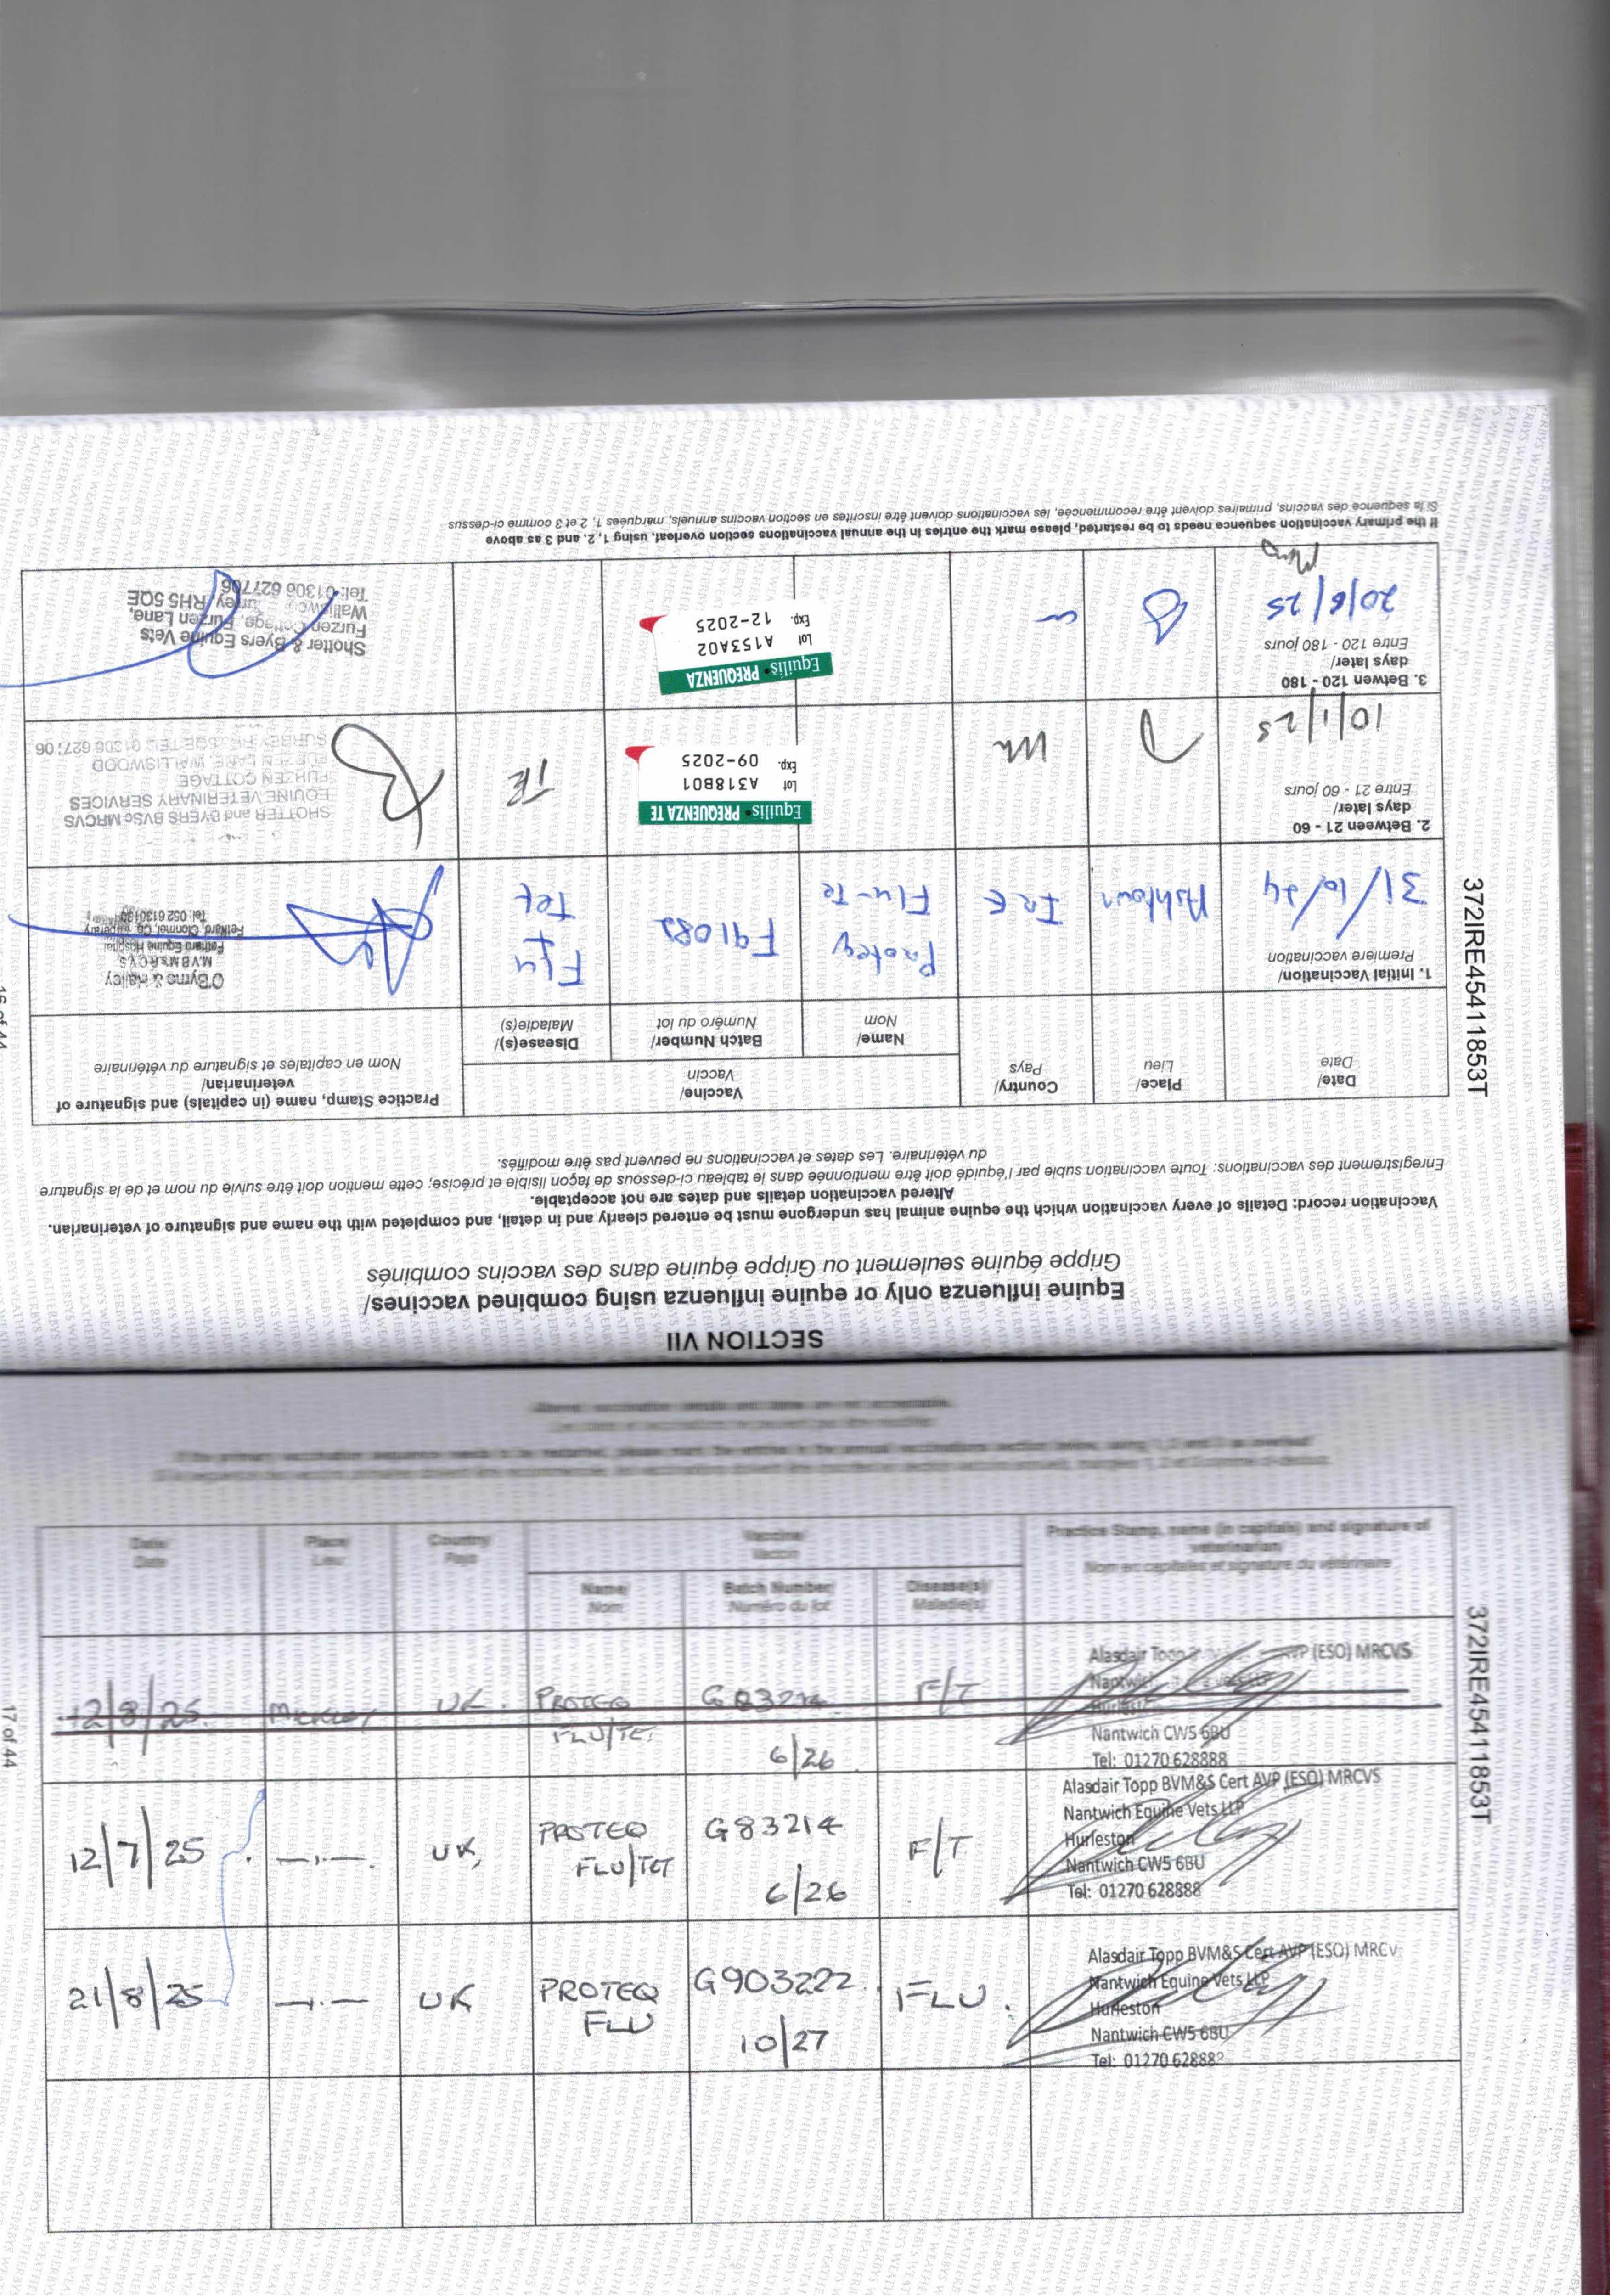 SECTION VII
Equine influenza only or equine influenza using combined vaccines/
Grippe équine seulement ou Grippe équine dans des vaccins combinés
Vaccination record: Details of every vaccination which the equine animal has undergone must be entered clearly and in detail, and completed with the name and signature of veterinarian.
Altered vaccination details and dates are not acceptable.
Enregistrement des vaccinations: Toute vaccination subie par l'équidé doit être mentionnée dans le tableau ci-dessous de façon lisible et précise; cette mention doit être suivie du nom et de la signature
du vétérinaire. Les dates et vaccinations ne peuvent pas être modifiés.
Date/
Date
Place/
Lieu
Country/
Pays
Vaccine/
Vaccin
Name/
Nom
Batch Number/
Numéro du lot
Disease(s)/
Maladie(s)
Practice Stamp, name (in capitals) and signature of
veterinarian/
Nom en capitales et signature du vétérinaire
1. Initial Vaccination/
Première vaccination
31/10/24
Ashtown
IRE
Proteq
Flu-Te
F91082
Flu
Tet
O'Byrne & Halley
M.V.B M.R.C.V.S
Fethard Equine Hospital
Fethard, Clonmel, Co. Tipperary
Tel: 052 6130130
2. Between 21 - 60
days later/
Entre 21 - 60 jours
10/1/25
Equilis PREQUENZA TE
Lot A318B01
Exp. 09-2025
TE
SHOTTER and BYERS BVSc MRCVS
EQUINE VETERINARY SERVICES
FURZEN COTTAGE
FURZEN LANE, WALLISWOOD
SURREY RH5 5QE TEL: 01306 627706
3. Betwen 120 - 180
days later/
Entre 120 - 180 jours
20/6/25
Equilis PREQUENZA
Lot A153A02
Exp. 12-2025
Shotter & Byers Equine Vets
Furzen Cottage, Furzen Lane,
Walliswood, Surrey, RH5 5QE
Tel: 01306 627706
If the primary vaccination sequence needs to be restarted, please mark the entries in the annual vaccinations section overleaf, using 1, 2, and 3 as above
Si la sequence des vaccins, primaires doivent être recommencée, les vaccinations doivent être inscrites en section vaccins annuels, marquées 1, 2 et 3 comme ci-dessus
372IRE45411853T
16 of 44
Altered vaccination details and dates are not acceptable.
Date/
Date
Place/
Lieu
Country/
Pays
Vaccine/
Vaccin
Name/
Nom
Batch Number/
Numéro du lot
Disease(s)/
Maladie(s)
Practice Stamp, name (in capitals) and signature of
veterinarian/
Nom en capitales et signature du vétérinaire
12/8/25
UK.
PROTEQ
FLU/TET
G83214
6/26
F/T
Alasdair Topp AVP (ESO) MRCVS
Nantwich
Nantwich CW5 6BU
Tel: 01270 628888
12/7/25
UK,
PROTEQ
FLU/TET
G83214
6/26
F/T
Alasdair Topp BVM&S Cert AVP (ESO) MRCVS
Nantwich Equine Vets LLP
Hurleston
Nantwich CW5 6BU
Tel: 01270 628888
21/8/25
UK
PROTEQ
FLU
G903222
10/27
FLU.
Alasdair Topp BVM&S Cert AVP (ESO) MRCV
Nantwich Equine Vets LLP
Hurleston
Nantwich CW5 6BU
Tel: 01270 628882
372IRE45411853T
17 of 44